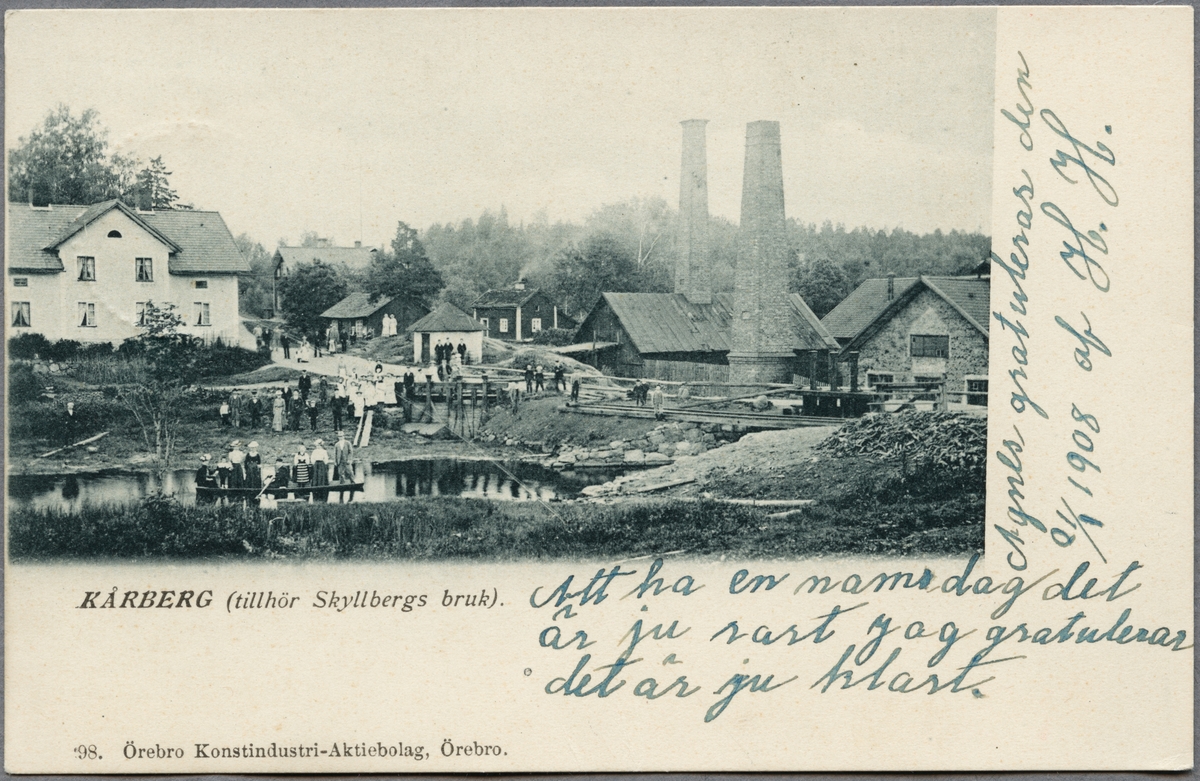 KÅRBERG (tillhör Skyllbergs bruk).
Att ha en namnsdag det
är ju rart jag gratulerar
det är ju klart.
Agnes gratuleras den
21/1 1908 af H. H.
98. Örebro Konstindustri-Aktiebolag, Örebro.